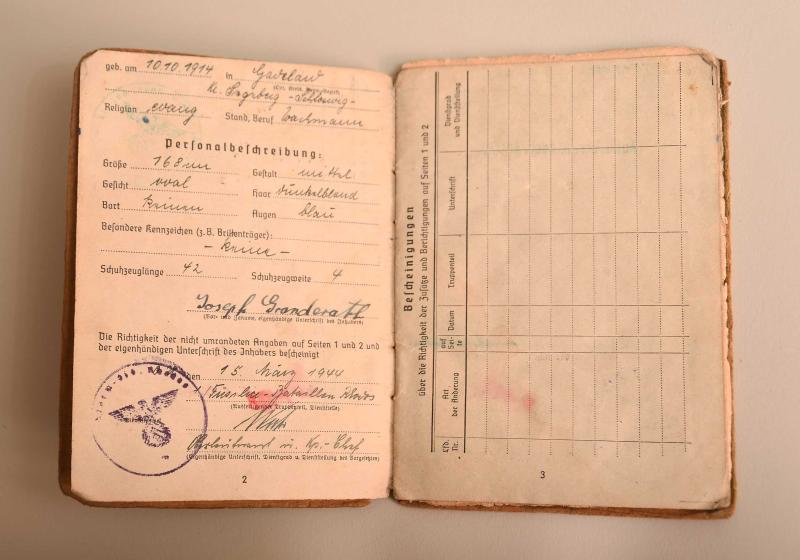 geb. am 10.10.1914 in Gadeland
(Ort, Kreis, Verw.-Bezirk)
Kr. Segeberg - Schleswig-
Religion evang Stand, Beruf
Personalbeschreibung:
Größe 168 cm Gestalt mittel
Gesicht oval Haar dunkelblond
Bart keinen Augen blau
Besondere Kennzeichen (z.B. Brillenträger):
- keine -
Schuhzeuglänge 42 Schuhzeugweite 4
Joseph Granderath
(Vor- und Zuname, eigenhändige Unterschrift des Inhabers)
Die Richtigkeit der nicht umrandeten Angaben auf Seiten 1 und 2 und
der eigenhändigen Unterschrift des Inhabers bescheinigt
den 15. März 1944
Füsilier-Bataillon
(Ausfertigender Truppenteil, Dienststelle)
Oberleutnant u. Kp.-Chef
(Eigenhändige Unterschrift, Dienstgrad u. Dienststellung des Vorgesetzten)
2
Bescheinigungen
über die Richtigkeit der Zusätze und Berichtigungen auf Seiten 1 und 2
Lfd. Nr.
Art der Änderung
auf Sei- te
Datum
Truppenteil
Unterschrift
Dienstgrad und Dienststellung
3